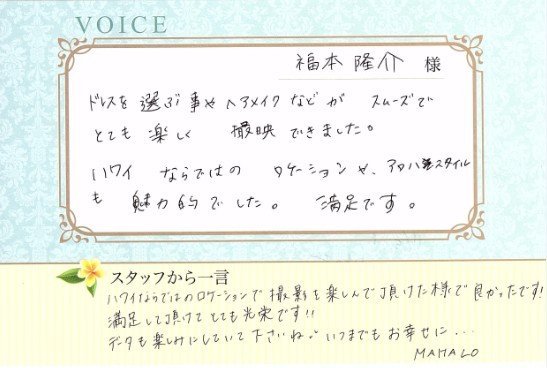 VOICE
福本 隆介 様
ドレスを選ぶ事やヘアメイクなどが スムーズで
とても楽しく 撮映できました。
ハワイ ならではの ロケーションや、アロハ登スタイル
も 魅力的でした。 満足です。
スタッフから一言
ハワイならではのロケーションで撮影を楽しんで頂けた様で良かったです!
満足して頂けてとても光栄です!!
データも楽しみにしていて下さいね。いつまでもお幸せに...
MAHALO